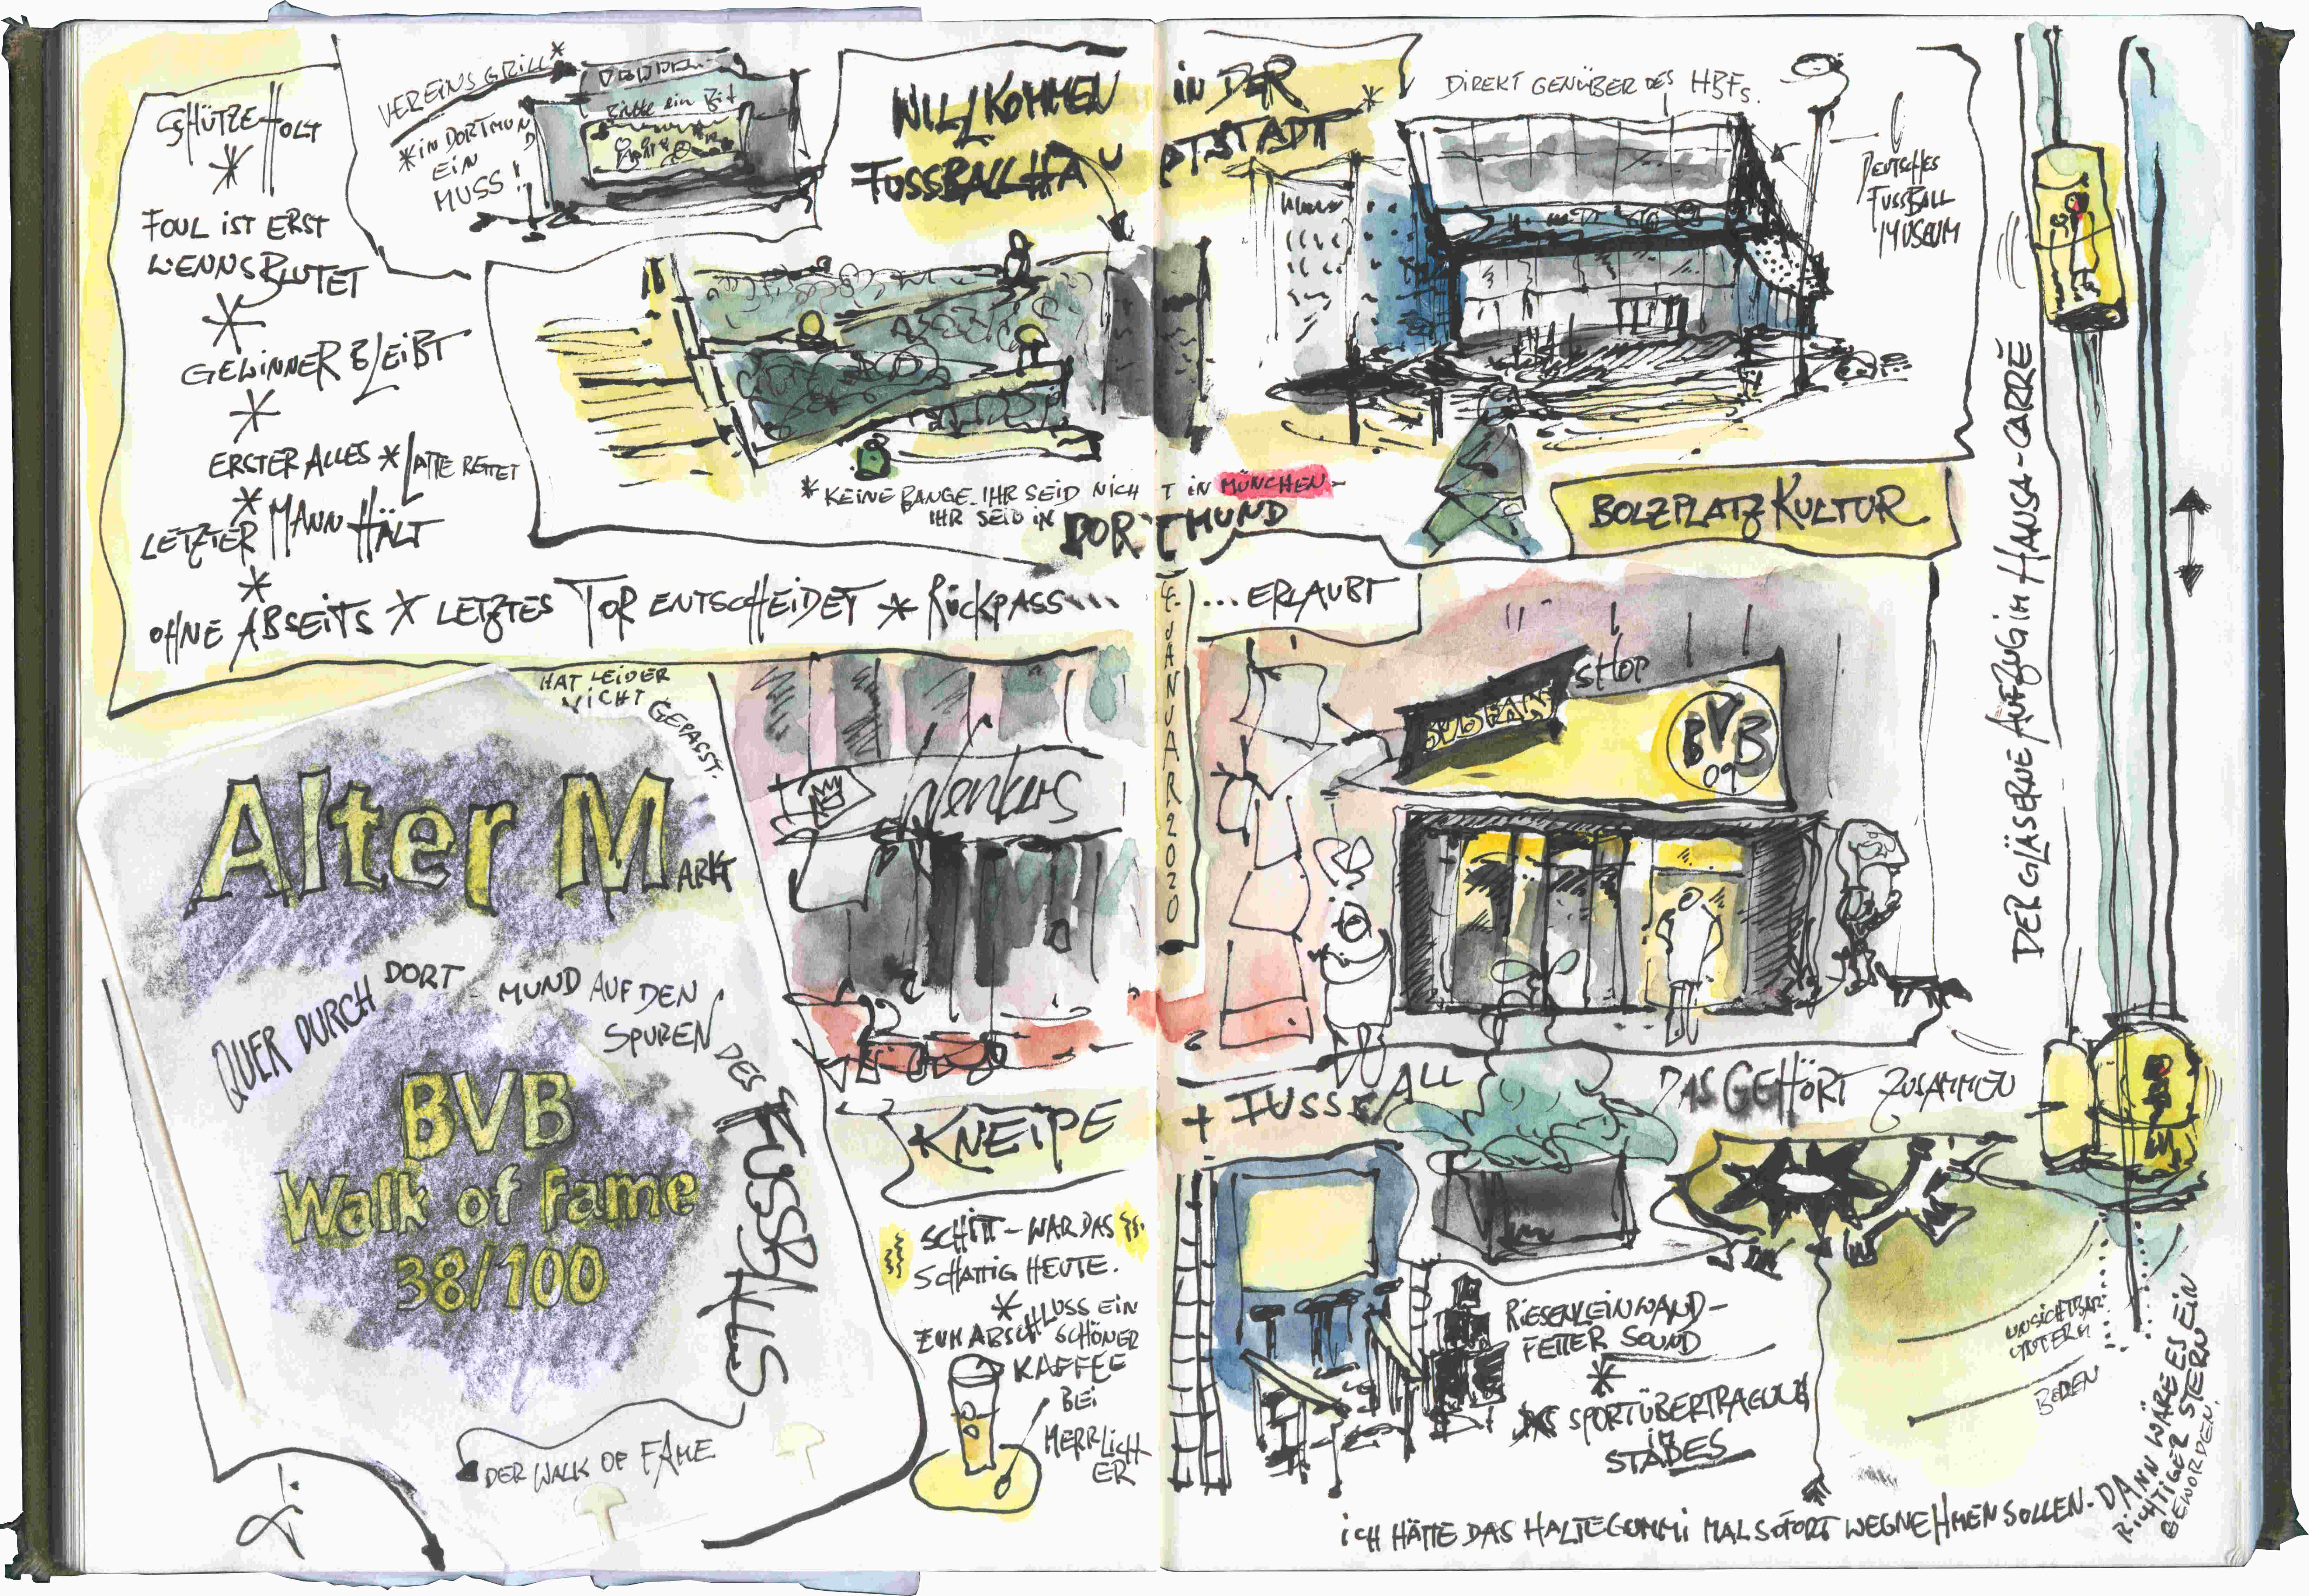 SCHÜTZE HOLT
*
FOUL IST ERST
WENNS BLUTET
*
GEWINNER BLEIBT
*
ERSTER ALLES * LATTE RETTET
*
LETZTER MANN HÄLT
*
OHNE ABSEITS * LETZTES TOR ENTSCHEIDET * RÜCKPASS...
...ERLAUBT
VEREINSGRILL*
*IN DORTMUND
EIN
MUSS!
WILLKOMMEN IN DER
FUSSBALLHAUPTSTADT*
DIREKT GENÜBER DES HBFS.
DEUTSCHES
FUSSBALL
MUSEUM
* KEINE BANGE. IHR SEID NICHT IN MÜNCHEN-
IHR SEID IN DORTMUND
BOLZPLATZKULTUR
DER GLÄSERNE AUFZUG IM HANSA-CARRÉ
JANUAR 2020
HAT LEIDER
NICHT
GEPASST.
Alter MARKT
QUER DURCH DORT-MUND AUF DEN
SPUREN
DES
FUSSBALLS
BVB
Walk of Fame
38/100
DER WALK OF FAME
Wenkers
BVB FAN
SHOP
BVB
09
KNEIPE + FUSSBALL
DAS GEHÖRT ZUSAMMEN
SCHITT-WAR DAS
SCHATTIG HEUTE.
*
ZUM ABSCHLUSS EIN
SCHÖNER
KAFFEE
BEI
HERRLICH
ER
RIESENLEINWAND-
FETTER SOUND
*
SPORTÜBERTRAGUNG
IM
STADES
UNSICHTBAR
UNTERM
BODEN
ICH HÄTTE DAS HALTEGUMMI MAL SOFORT WEGNEHMEN SOLLEN. DANN WÄRE ES EIN
RICHTIGER STERN
GEWORDEN.